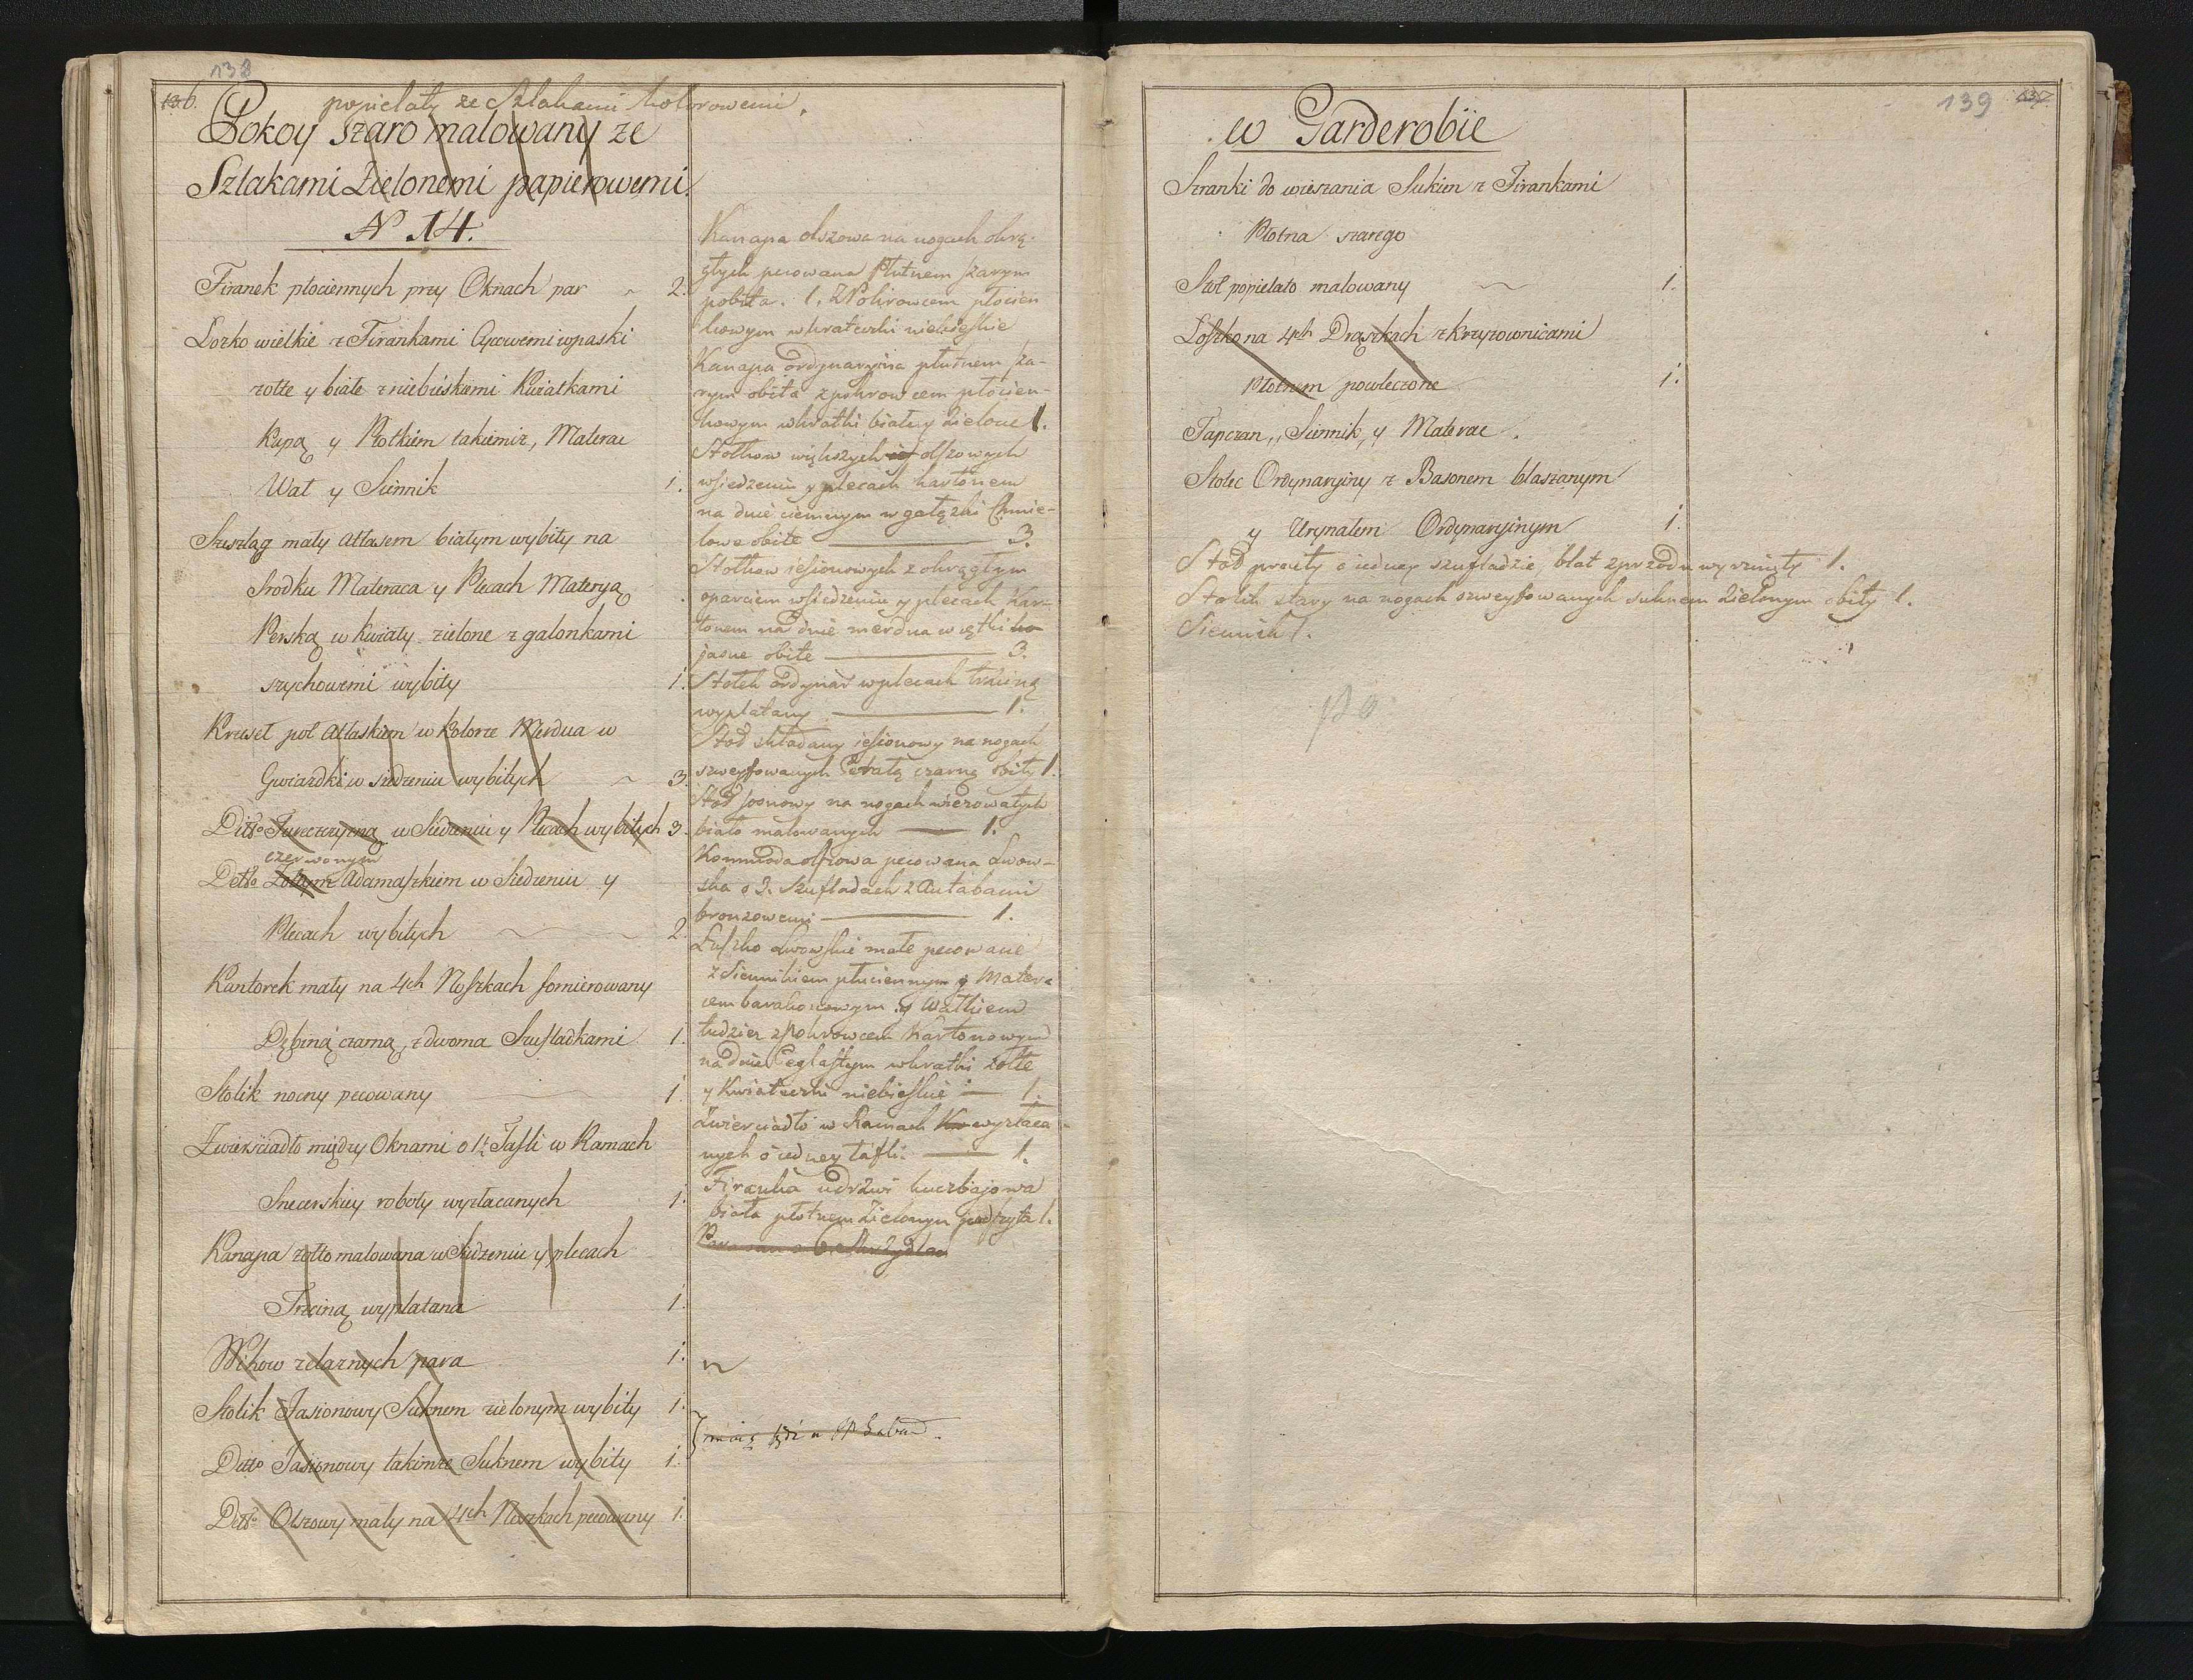 138
136.
popielaty ze Szlakami kolorowemi.
Pokoy szaro malowany ze
Szlakami Zielonemi papierowemi.
N 14.
Firanek płociennych przy Oknach par ~ 2.
Łozko wielkie z Firankami Cycowemi wpaski
zołte y białe z niebieskiemi Kwiatkami
Kapą y Płotkiem takiemiz, Materac
Wał y Siennik 1.
Szeszląg mały Atłasem białym wybity na
Srodku Materaca y Plecach Materyą
Perską w kwiaty zielone z galonkami
szychowemi wybity 1.
Krzeseł poł Atłaskiem w kolorze Merdua w
Gwiazdki w siedzeniu wybitych ~ 3.
Ditto Turecczyzną w Siedzeniu y Plecach wybitych 3.
czerwonym
Detto Zołtym Adamaszkiem w Siedzeniu y
Plecach wybitych 2.
Kantorek mały na 4ch Noszkach fornierowany
Dębiną czarną, z dwoma Szufladkami 1.
Stolik nocny pecowany 1.
Zwierściadło między Oknami o 1. Tafli w Ramach
Snecerskiey roboty wyzłacanych 1.
Kanapa zołto malowana w Siedzeniu y plecach
Trzciną wyplatana 1.
Wikow zelaznych para 1.
Stolik Jasionowy Suknem zielonym wybity 1.
Ditto Jasionowy takimze Suknem wybity 1.
Detto Olszowy mały na 4ch Noszkach pecowany 1.
Kanapa olszowa na nogach okrą-
głych pecowana Płutnem szarym
pobita. 1. Z Pokrowcem płócien
kowym w krateczki niebieskie
Kanapa ordynaryina płutnem sza-
rym obita z pokrowcem płócien-
kowym w kratki białe y zielone 1.
Stołkow większych olszowych
w siedzeniu y plecach kartonem
na dnie ciemnym w gałązki Chmie-
lowe obite 3.
Stołkow iesionowych z okrągłym
oparciem w siedzeniu y plecach kar-
tonem na dnie merdua w
jasne obite 3.
Stołek ordynar w plecach trzciną
wyplatany 1.
Stoł składany iesionowy na nogach
szweyfowanych Ceratą czarną obity 1.
Stoł sosnowy na nogach
biało malowanych 1.
Kommoda olszowa pecowana Lwow-
ska o 3. Szufladach z Autabami
bronzowemi 1.
Łuszko Lwowskie małe pecowane
z Siennikiem płuciennym y Matera
cem barakonowym y Wałkiem
tudziez z Pokrowcem Kartonowym
na dnie Ceglastym w kratki żołte
y Kwiateczki niebieskie 1.
Zwierciadło w Ramach wyzłaca
nych o iedney tafli 1.
Firanka udrzwi kuczbajowa
biała płutnem zielonym podszyta 1.
139
137.
w Garderobie
Szranki do wieszania Sukien z Firankami
Płotna szarego
Stoł popielato malowany 1.
Łoszko na 4ch Drązkach z krzyzownicami
Płotnem powleczone 1.
Tapczan, Siennik, y Materac.
Stolec Ordynaryiny z Basonem blaszanym
y Urynałem Ordynaryinym 1.
Stoł prosty o iedney szufladzie, blat zprzodu wyrznięty 1.
Stolik stary na nogach szweyfowanych suknem zielonym obity 1.
Siennik 1.